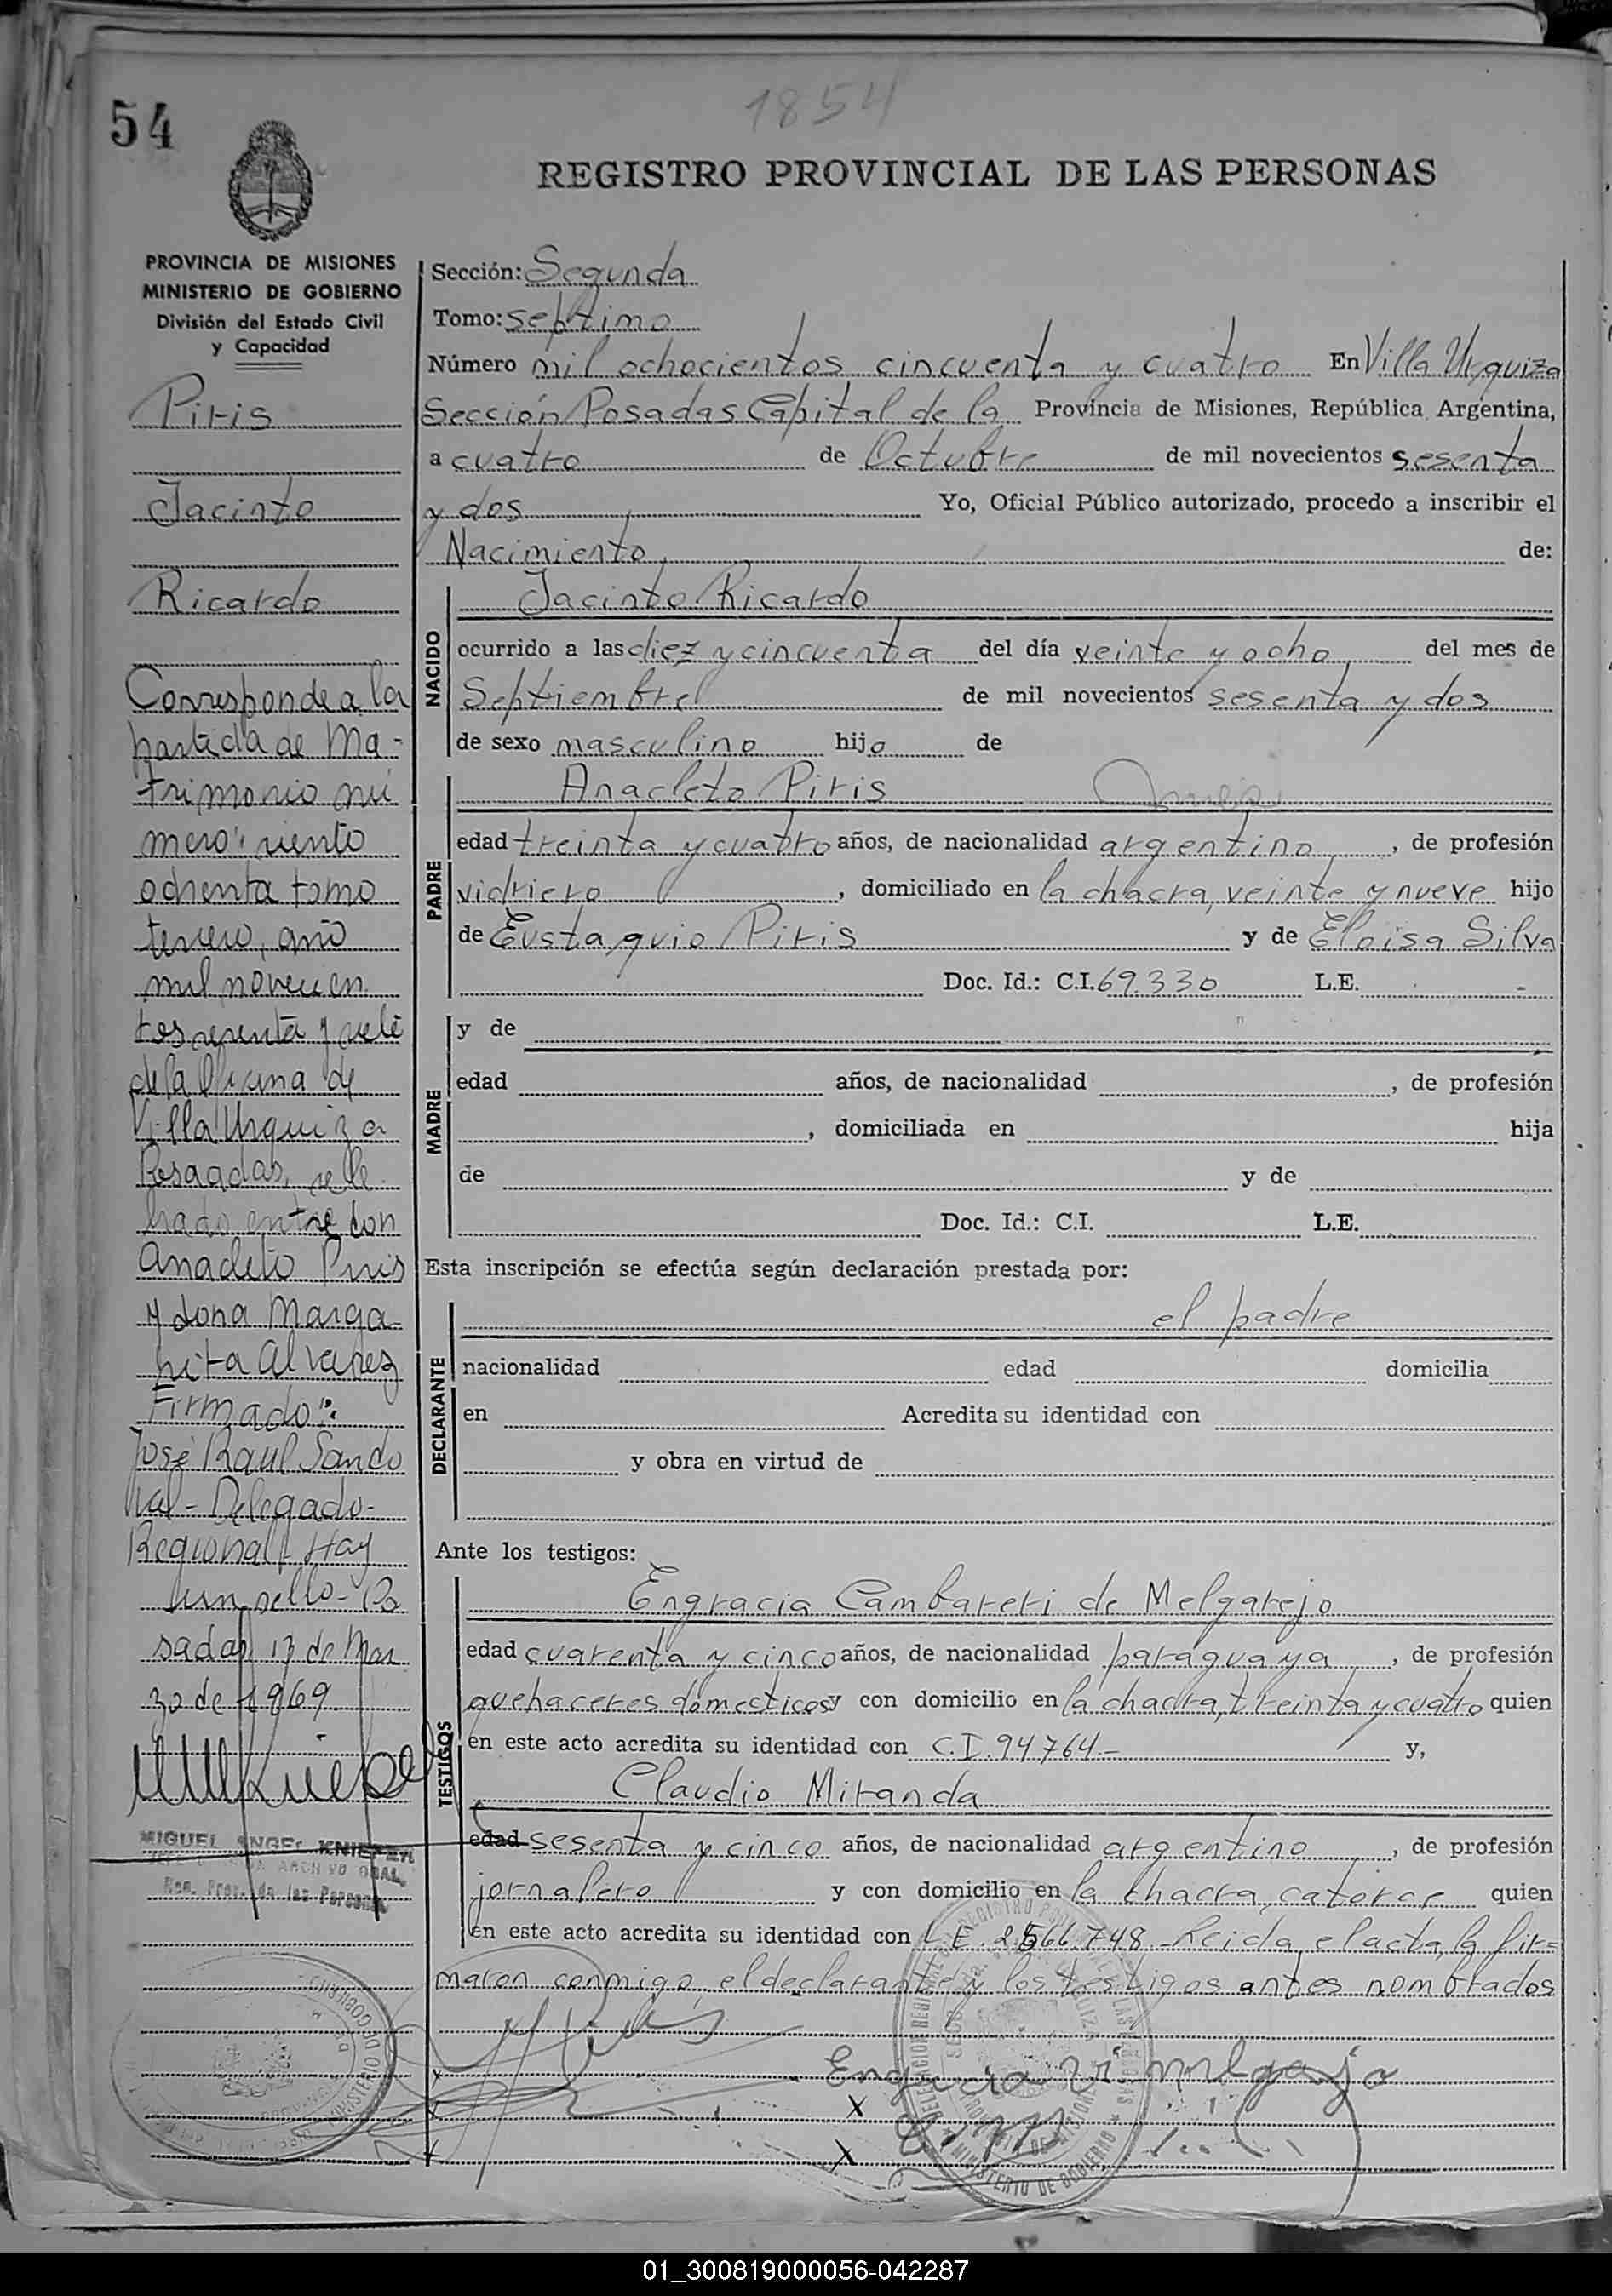 54
1854
REGISTRO PROVINCIAL DE LAS PERSONAS
PROVINCIA DE MISIONES
MINISTERIO DE GOBIERNO
División del Estado Civil
y Capacidad
Piris
Jacinto
Ricardo
Corresponde a la
partida de Ma-
trimonio nú
mero: ciento
ochenta tomo
tercero, año
mil novecien
tos sesenta y siete
de la Oficina de
Villa Urquiza
Posadas, cele
brado entre don
Anacleto Piris
y doña Marga-
rita Alvarez
Firmado:
José Raul Sando
val - Delegado-
Regional - Hay
un sello - Po
sadas, 13 de Mar
zo de 1969
MIGUEL ANGEL
ARCHIVO GRAL.
Reg. Prov. de las Personas
Sección: Segunda
Tomo: septimo
Número mil ochocientos cincuenta y cuatro En Villa Urquiza
Sección Posadas Capital de la Provincia de Misiones, República Argentina,
a cuatro de Octubre de mil novecientos sesenta
y dos Yo, Oficial Público autorizado, procedo a inscribir el
Nacimiento de:
NACIDO
Jacinto Ricardo
ocurrido a las diez y cincuenta del día veinte y ocho del mes de
Septiembre de mil novecientos sesenta y dos
de sexo masculino hijo de
PADRE
Anacleto Piris
edad treinta y cuatro años, de nacionalidad argentino, de profesión
vidriero, domiciliado en la chacra, veinte y nueve hijo
de Eustaquio Piris y de Eloisa Silva
Doc. Id.: C.I. 69.330 L.E. -
MADRE
y de
edad años, de nacionalidad , de profesión
, domiciliada en hija
de y de
Doc. Id.: C.I. L.E.
Esta inscripción se efectúa según declaración prestada por:
DECLARANTE
el padre
nacionalidad edad domicilia
en Acredita su identidad con
y obra en virtud de
Ante los testigos:
TESTIGOS
Engracia Cambareri de Melgarejo
edad cuarenta y cinco años, de nacionalidad paraguaya, de profesión
quehaceres domecticos y con domicilio en la chacra, treinta y cuatro quien
en este acto acredita su identidad con C.I. 94764.- y,
Claudio Miranda
edad sesenta y cinco años, de nacionalidad argentino, de profesión
jornalero y con domicilio en la chacra, catorce quien
en este acto acredita su identidad con L.E. 2.566.748.- Leida el acta, la fir=
maron conmigo, el declarante y los testigos antes nombrados
MINISTERIO DE GOBIERNO
01_300819000056-042287